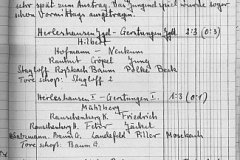 sehr spät zum Austrag. Das Jungend spiel wurde sogar
schon Vormittags ausgetragen.
Herleshausen Jgd - Gerstungen Jgd 2:3 (0:3)
Hilbert
Hofmann - Neukum
Rauhut Göpel Jung
Stugloff Roßbach Baum Polke Beck
Tore schoß: Stugloff 2
Herleshausen I - Gerstungen I. 1:3 (0:1)
Mühlberg
Rauschenberg K. Friedrich
Rauschenberg H. Fehr Jäckel
Baum G. Landefeld Piller Mosebach
Tore schoß: Baum G.